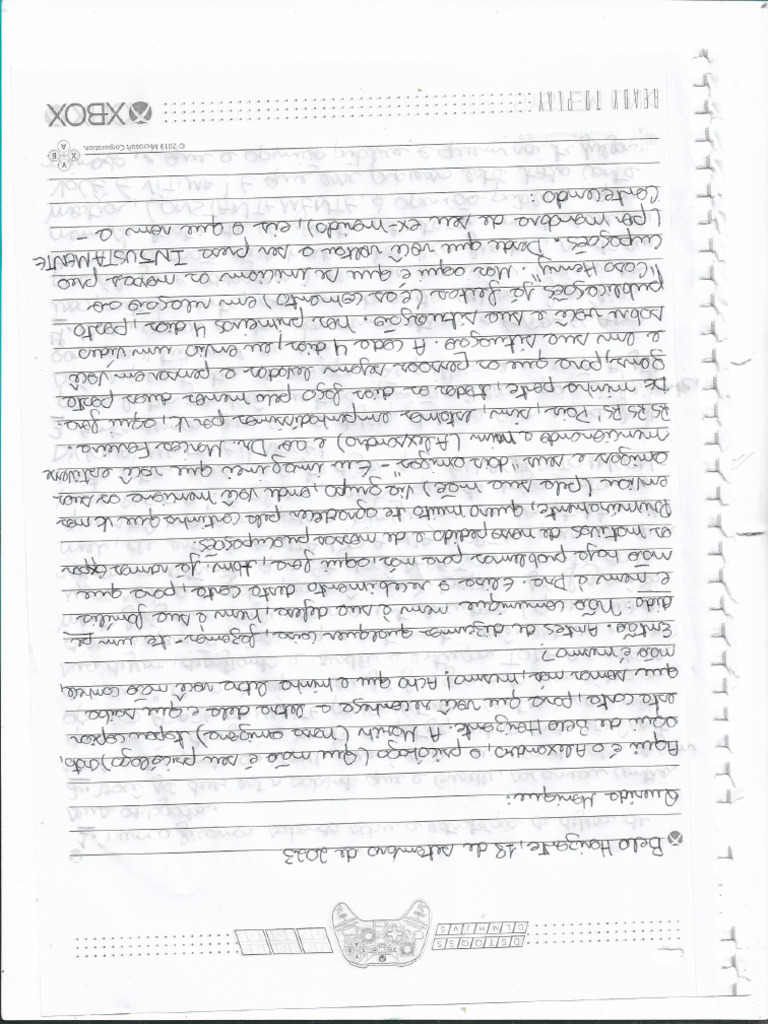 D S T Q Q S S
D L M M J V S
Belo Horizonte, 18 de setembro de 2023
Querida Monique:
Aqui é o Alexandro, o psicólogo (que não é seu psicólogo) do,
aqui de Belo Horizonte. A (nova amigona) topou copiar
esta carta, para que você reconheça a letra dela e que saiba
que somos nós, mesmo! Acho que a minha letra você não conhece,
não é mesmo?
Então. Antes de dizermos qualquer coisa, fazemos-te um pe-
dido: Não comunique nem à sua defesa, nem à sua família
e nem à Dra. Elisa o recebimento desta carta, para que
não haja problemas para nós aqui fora, ok? Já vamos expor
os motivos de novo pedido e de nossas preocupações.
Primeiramente, quero muito te agradecer pela cartinha que tu nos
enviou (pela sua mãe) via grupo, onde você menciona os seus
amigos e seus "dois amigos" - Eu imaginei que você estivesse
mencionando a mim (Alexsandro) e ao Dr. Marcos
RS RS RS! Pois, sim, estamos empenhadíssimos por ti, aqui fora.
De minha parte, todos os dias faço pelo menos duas posta
gens, para que as pessoas sejam levadas a pensar em você
e em sua situação. A cada 4 dias, eu envio um vídeo
sobre você e sua situação. Nos primeiros 4 dias, posto
publicações já feitas (e as comento) em relação ao
"Caso Henry". Mas aqui é que se iniciam as nossas preo
cupações. Desde que você voltou a ser presa INJUSTAMENTE
(por manobra de seu ex-marido), eis o que vem a-
contecendo:
© 2019 Microsoft Corporation.
Y X B A
READY TO PLAY
XBOX